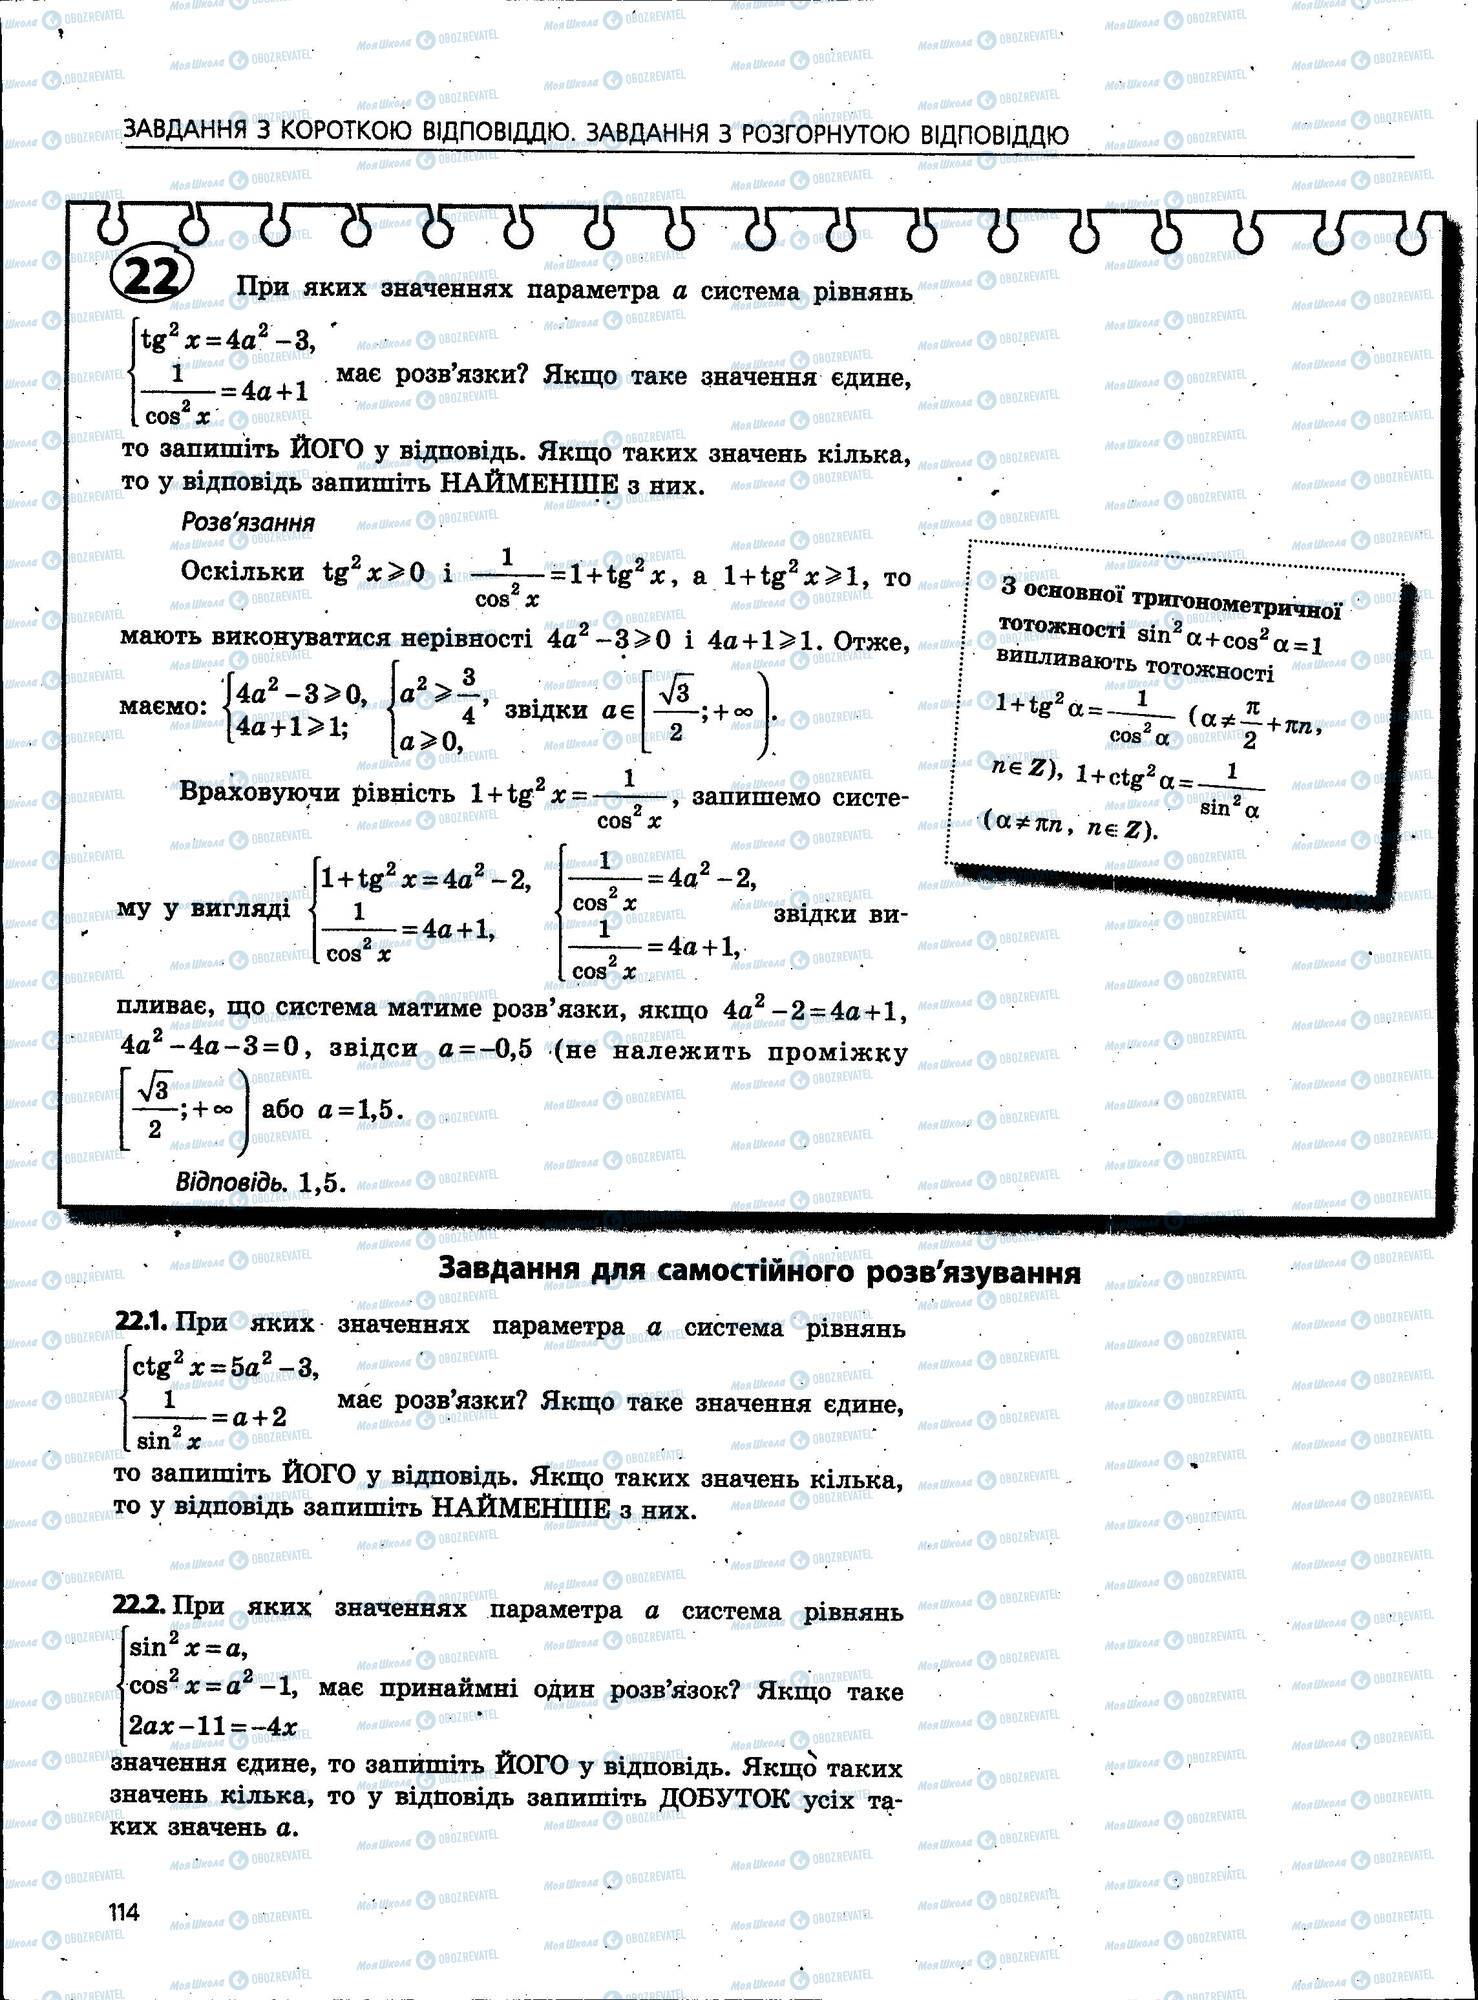 ЗАВДАННЯ З КОРОТКОЮ ВІДПОВІДДЮ. ЗАВДАННЯ З РОЗГОРНУТОЮ ВІДПОВІДДЮ
22 При яких значеннях параметра a система рівнянь
{ tg² x = 4a² − 3,
1/cos² x = 4a + 1 має розв'язки? Якщо таке значення єдине,
то запишіть ЙОГО у відповідь. Якщо таких значень кілька,
то у відповідь запишіть НАЙМЕНШЕ з них.
Розв'язання
Оскільки tg² x ⩾ 0 і 1/cos² x = 1 + tg² x, а 1 + tg² x ⩾ 1, то
мають виконуватися нерівності 4a² − 3 ⩾ 0 і 4a + 1 ⩾ 1. Отже,
маємо: { 4a² − 3 ⩾ 0, 4a + 1 ⩾ 1; { a² ⩾ 3/4, a ⩾ 0, звідки a ∈ [√3/2; +∞).
Враховуючи рівність 1 + tg² x = 1/cos² x, запишемо систе-
му у вигляді { 1 + tg² x = 4a² − 2, 1/cos² x = 4a + 1, { 1/cos² x = 4a² − 2, 1/cos² x = 4a + 1, звідки ви-
пливає, що система матиме розв'язки, якщо 4a² − 2 = 4a + 1,
4a² − 4a − 3 = 0, звідси a = −0,5 (не належить проміжку
[√3/2; +∞) або a = 1,5.
Відповідь. 1,5.
З основної тригонометричної
тотожності sin² α + cos² α = 1
випливають тотожності
1 + tg² α = 1/cos² α (α ≠ π/2 + πn,
n ∈ Z), 1 + ctg² α = 1/sin² α
(α ≠ πn, n ∈ Z).
Завдання для самостійного розв'язування
22.1. При яких значеннях параметра a система рівнянь
{ ctg² x = 5a² − 3,
1/sin² x = a + 2 має розв'язки? Якщо таке значення єдине,
то запишіть ЙОГО у відповідь. Якщо таких значень кілька,
то у відповідь запишіть НАЙМЕНШЕ з них.
22.2. При яких значеннях параметра a система рівнянь
{ sin² x = a,
cos² x = a² − 1, має принаймні один розв'язок? Якщо таке
2ax − 11 = −4x
значення єдине, то запишіть ЙОГО у відповідь. Якщо таких
значень кілька, то у відповідь запишіть ДОБУТОК усіх та-
ких значень a.
114
Моя Школа OBOZREVATEL